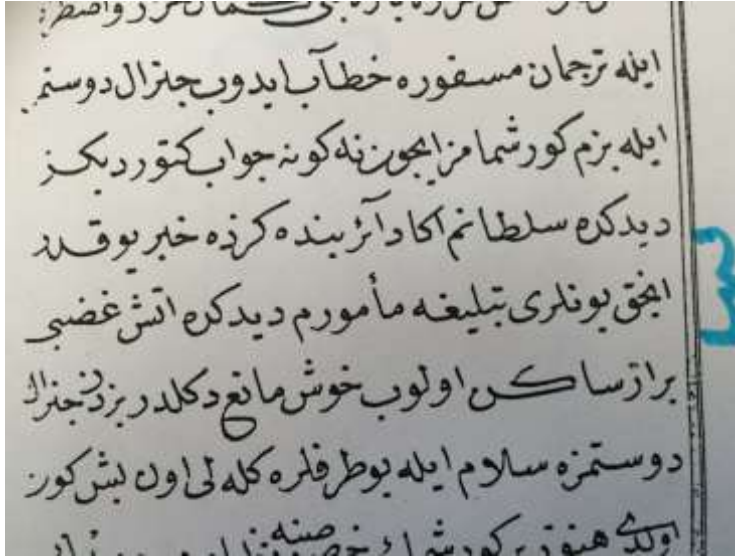 ايله ترجمان مسفوره خطاب ايدوب جنرال دوستم
ايله بزم كورشمامز ايچون نه كونه جواب كتوردیكز
ديدكده سلطانم اكا دائر بنده كزده خبر يوقدر
انجق بونلری تبليغه مأمورم ديدكده اتش غضبی
براز ساكن اولوب خوش مانع دكلدر بزدن جنرال
دوستمزه سلام ايله بوطرفلره كله لی اون بش كون
اولدی هنوز